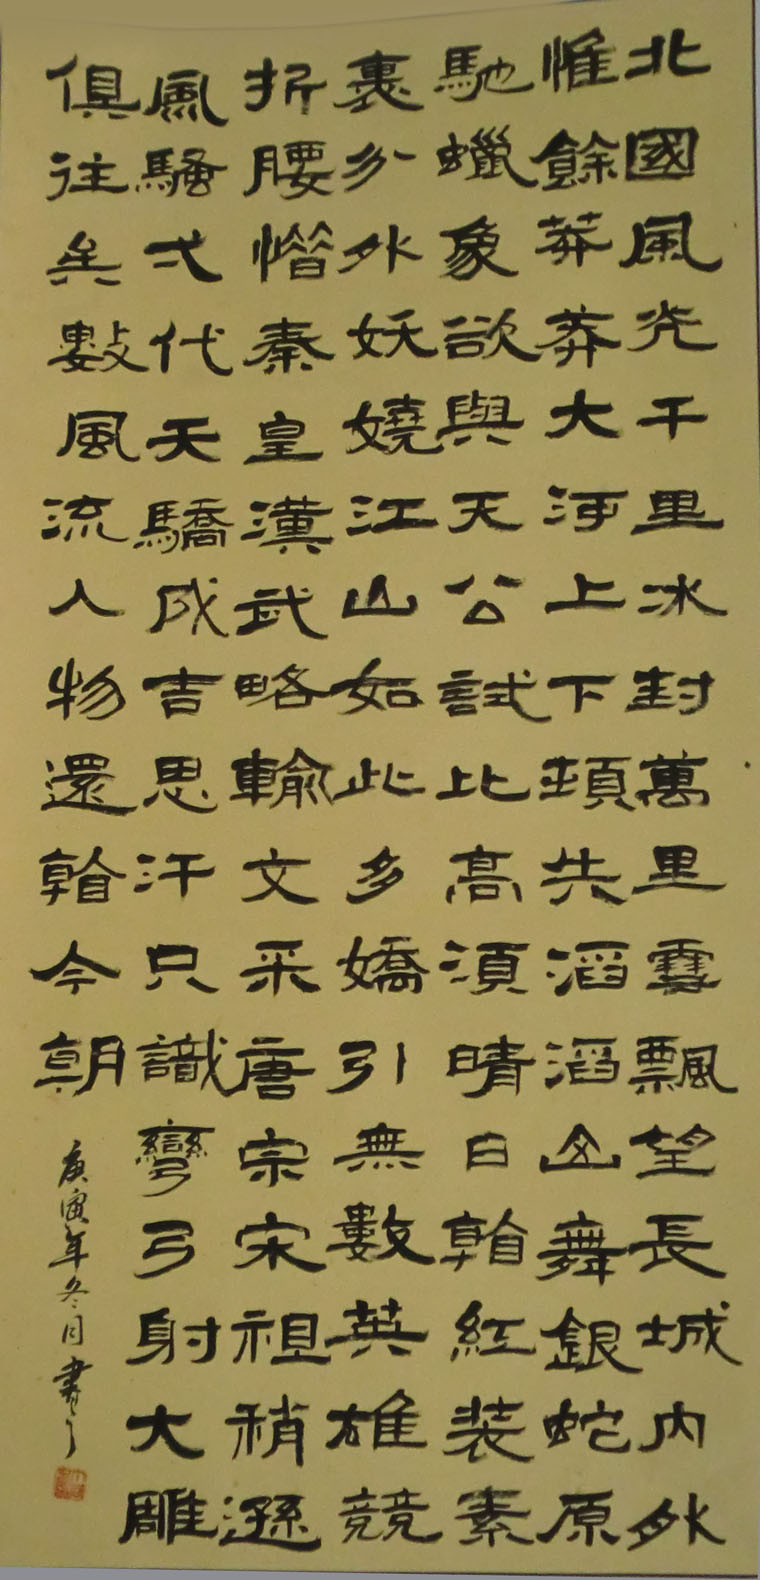 北國風光千里冰封萬里雪飄望長城內外
惟餘莽莽大河上下頓失滔滔山舞銀蛇原
馳蠟象欲與天公試比高須晴日看紅裝素
裹分外妖嬈江山如此多嬌引無數英雄競
折腰惜秦皇漢武略輸文采唐宗宋祖稍遜
風騷弌代天驕成吉思汗只識彎弓射大雕
俱往矣數風流人物還看今朝
庚寅年冬月書